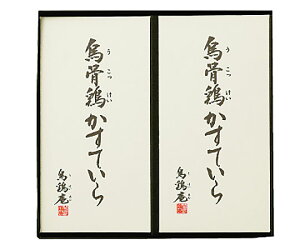 烏骨鶏かすていら
うこっけい
烏鶏庵
烏骨鶏かすていら
うこっけい
烏鶏庵